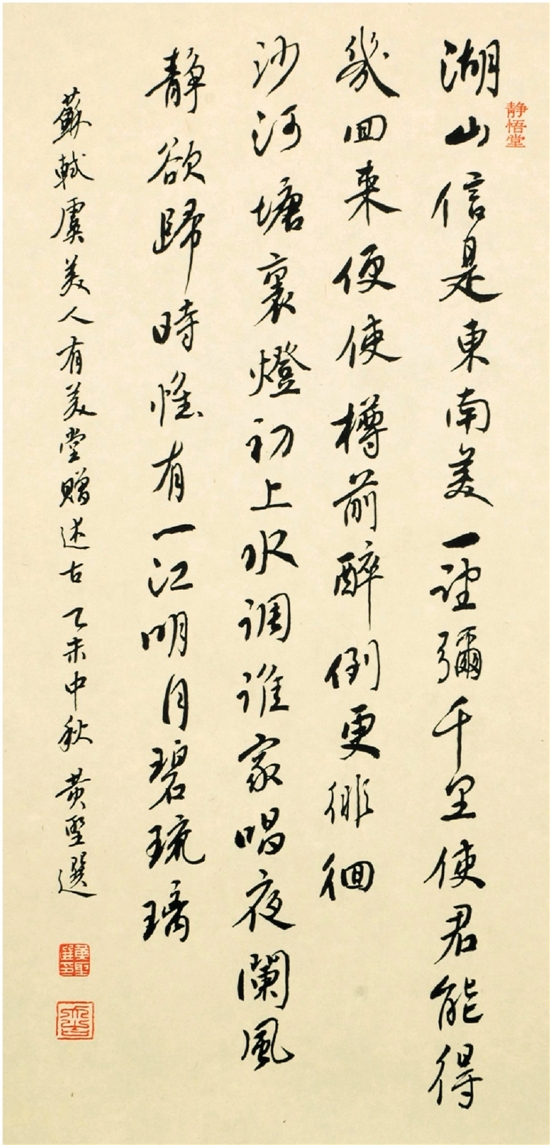 静悟堂
湖山信是東南美一望彌千里使君能得
幾回來便使樽前醉倒更徘徊
沙河塘裏燈初上水调谁家唱夜闌風
静欲歸時惟有一江明月碧琉璃
蘇軾虞美人有美堂贈述古 乙未中秋 黄堅選